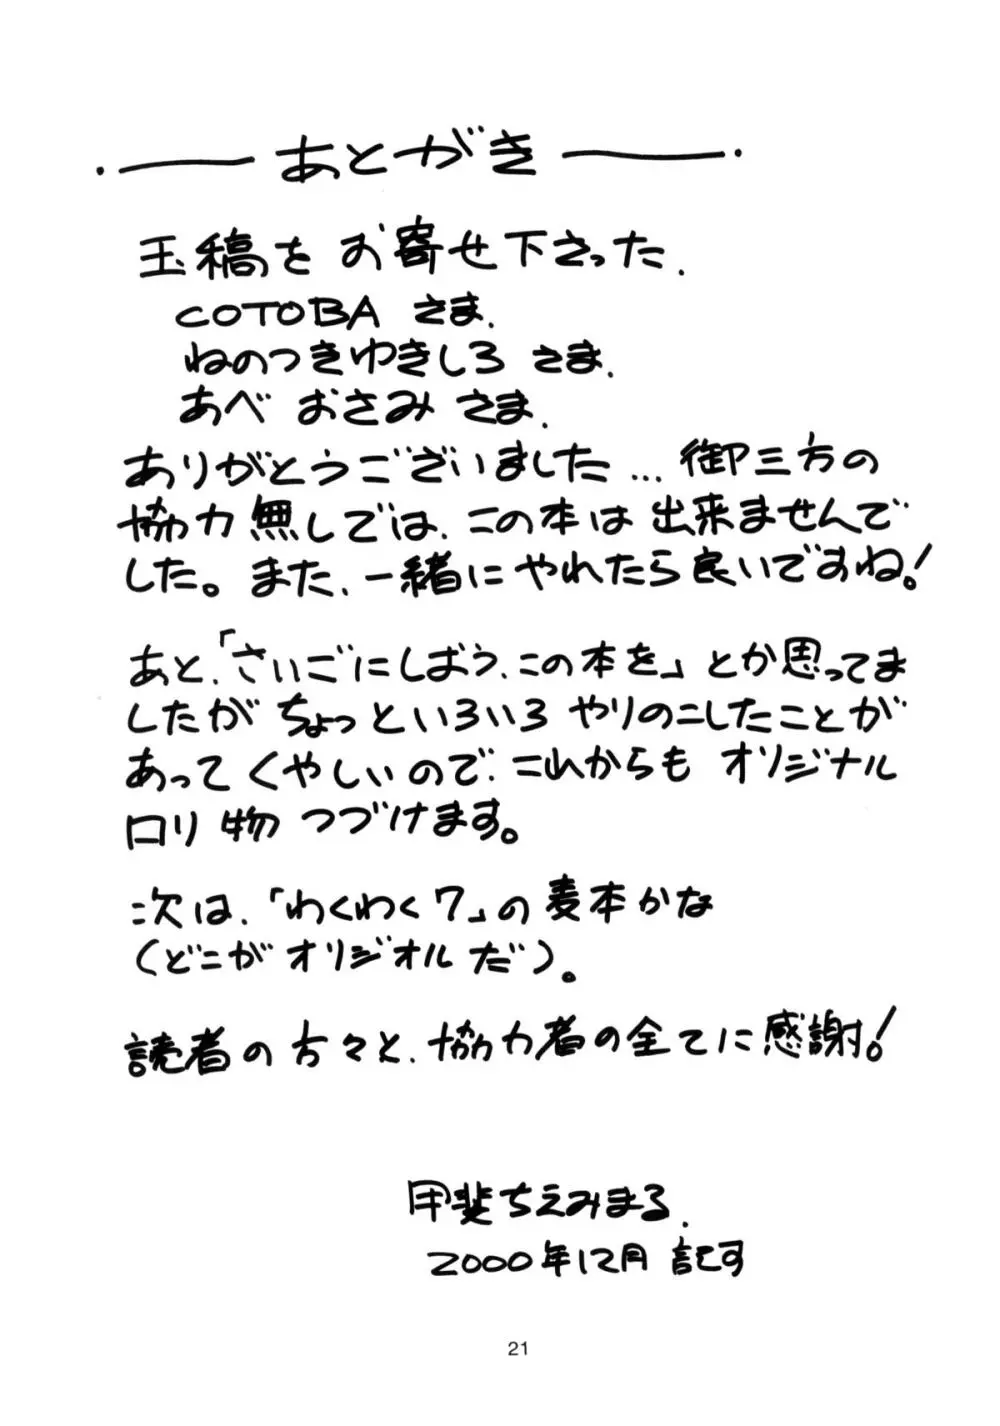 あとがき
玉稿をお寄せ下さった.
COTOBA さま.
ねのつきゆきしろ さま.
あべ おさみ さま.
ありがとうございました... 御三方の
協力無しでは、この本は出来ませんで
した。また、一緒にやれたら良いですね!
あと、「さいごにしばう、この本を」とか思ってま
したがちょっといろいろやりのこしたことが
あってくやしいので、これからも オリジナル
ロリ物 つづけます。
次は、「わくわく7」の麦本かな
(どこがオリジオルだ)。
読者の方々と、協力者の全てに感謝!
甲斐ちえみまる.
2000年12月 記す
21